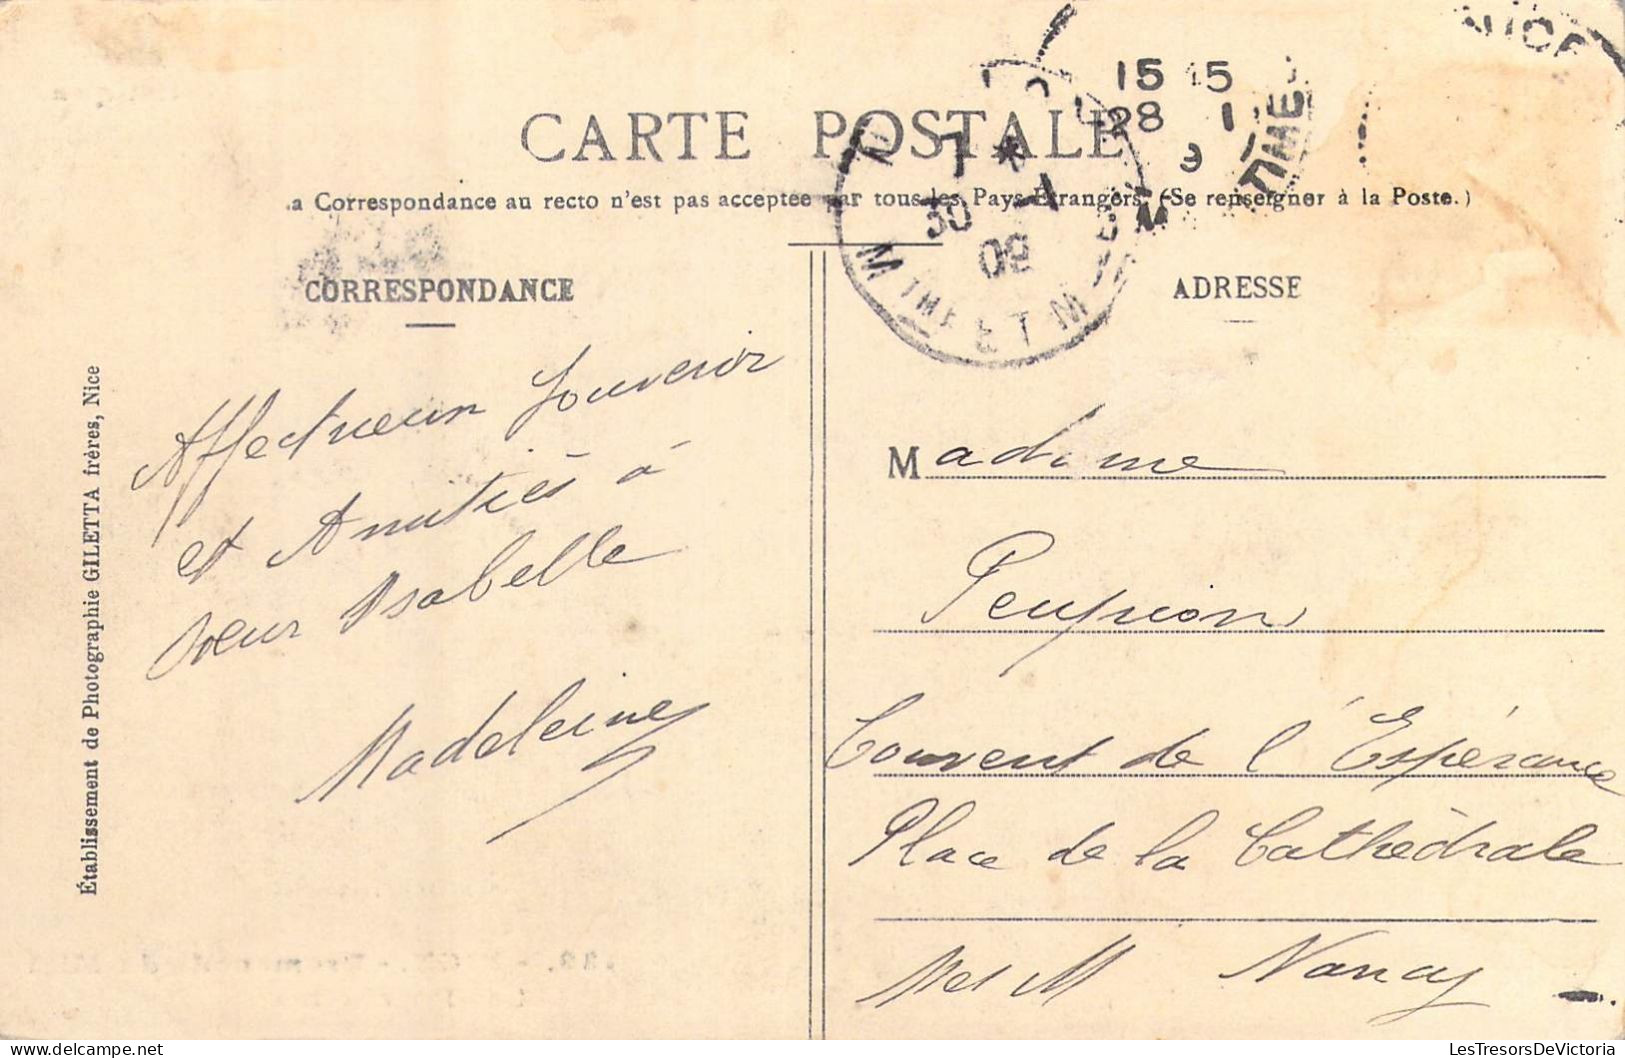 CARTE POSTALE
a Correspondance au recto n'est pas acceptée par tous les Pays Étrangers. (Se renseigner à la Poste.)
CORRESPONDANCE
Affectueux Souvenir
et Amitiés à
soeur Isabelle
Madeleine
Établissement de Photographie GILETTA frères, Nice
NICE
15 15
28 1
9
7 *
30 1
09
MTHE ET M
ADRESSE
Madame
Peupion
Couvent de l'Espérance
Place de la Cathédrale
Nancy
Met M
LesTresorsDeVictoria